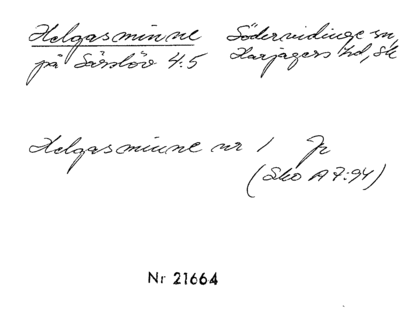 Helgasminne Södervidinge sn,
på Särslöv 4:5 Harjagers hd, Sk
Helgasminne nr 1 Jr
(Sko A7:94)
Nr 21664